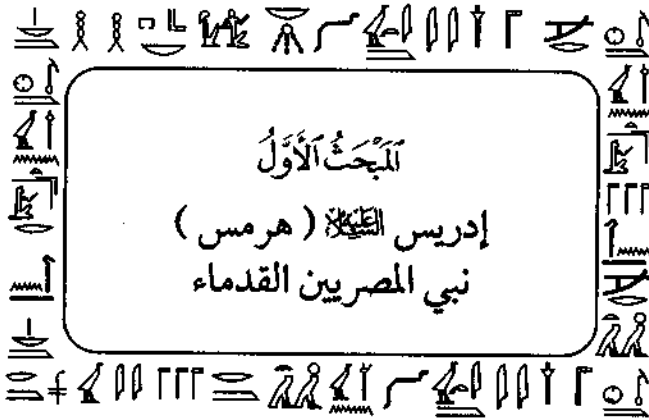 المَبْحَثُ الأَوَّلُ
إدريس عليه السلام ( هرمس )
نبي المصريين القدماء